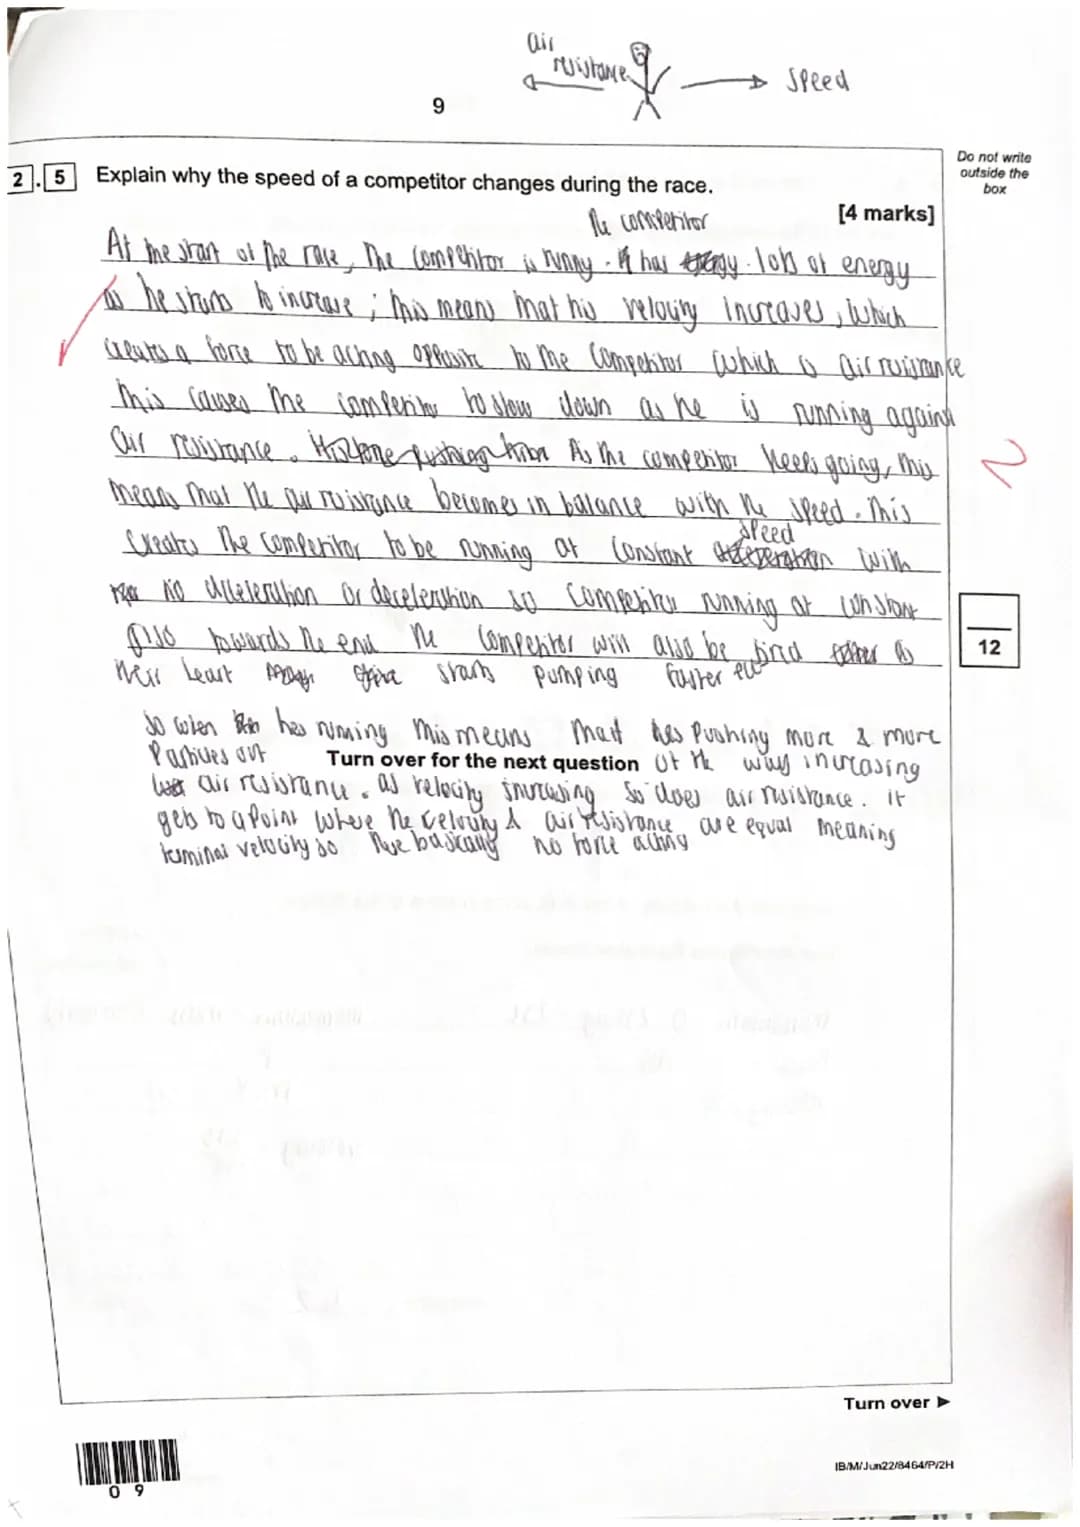 air
resistance
speed
9
Do not write
outside the
box
2.5 Explain why the speed of a competitor changes during the race.
[4 marks]
the competitor
At the start of the race, The competitor is runny. has energy. lots of energy
as he starts to increase; this means that his velocity increases, which
creates a force to be acting opposite to the competitor which is air resistance
this causes the competitor to slow down as he is running against
air resistance. As the competitor keeps going, this
2
means that the air resistance becomes in balance with the speed. This
speed
creates the competitor to be running at constant with
no acceleration or deceleration so competitor running at constant
also towards the end the competitor will also be tired as
12
their heart starts pumping faster
so when hes running this means that hes pushing more & more
Particles out
Turn over for the next question
of the way increasing
air resistance. as velocity increasing so does air resistance. it
gets to a point where the velocity & air resistance are equal meaning
terminal velocity so basically no force acting
Turn over ►
0 9
IB/M/Jun22/8464/P/2H